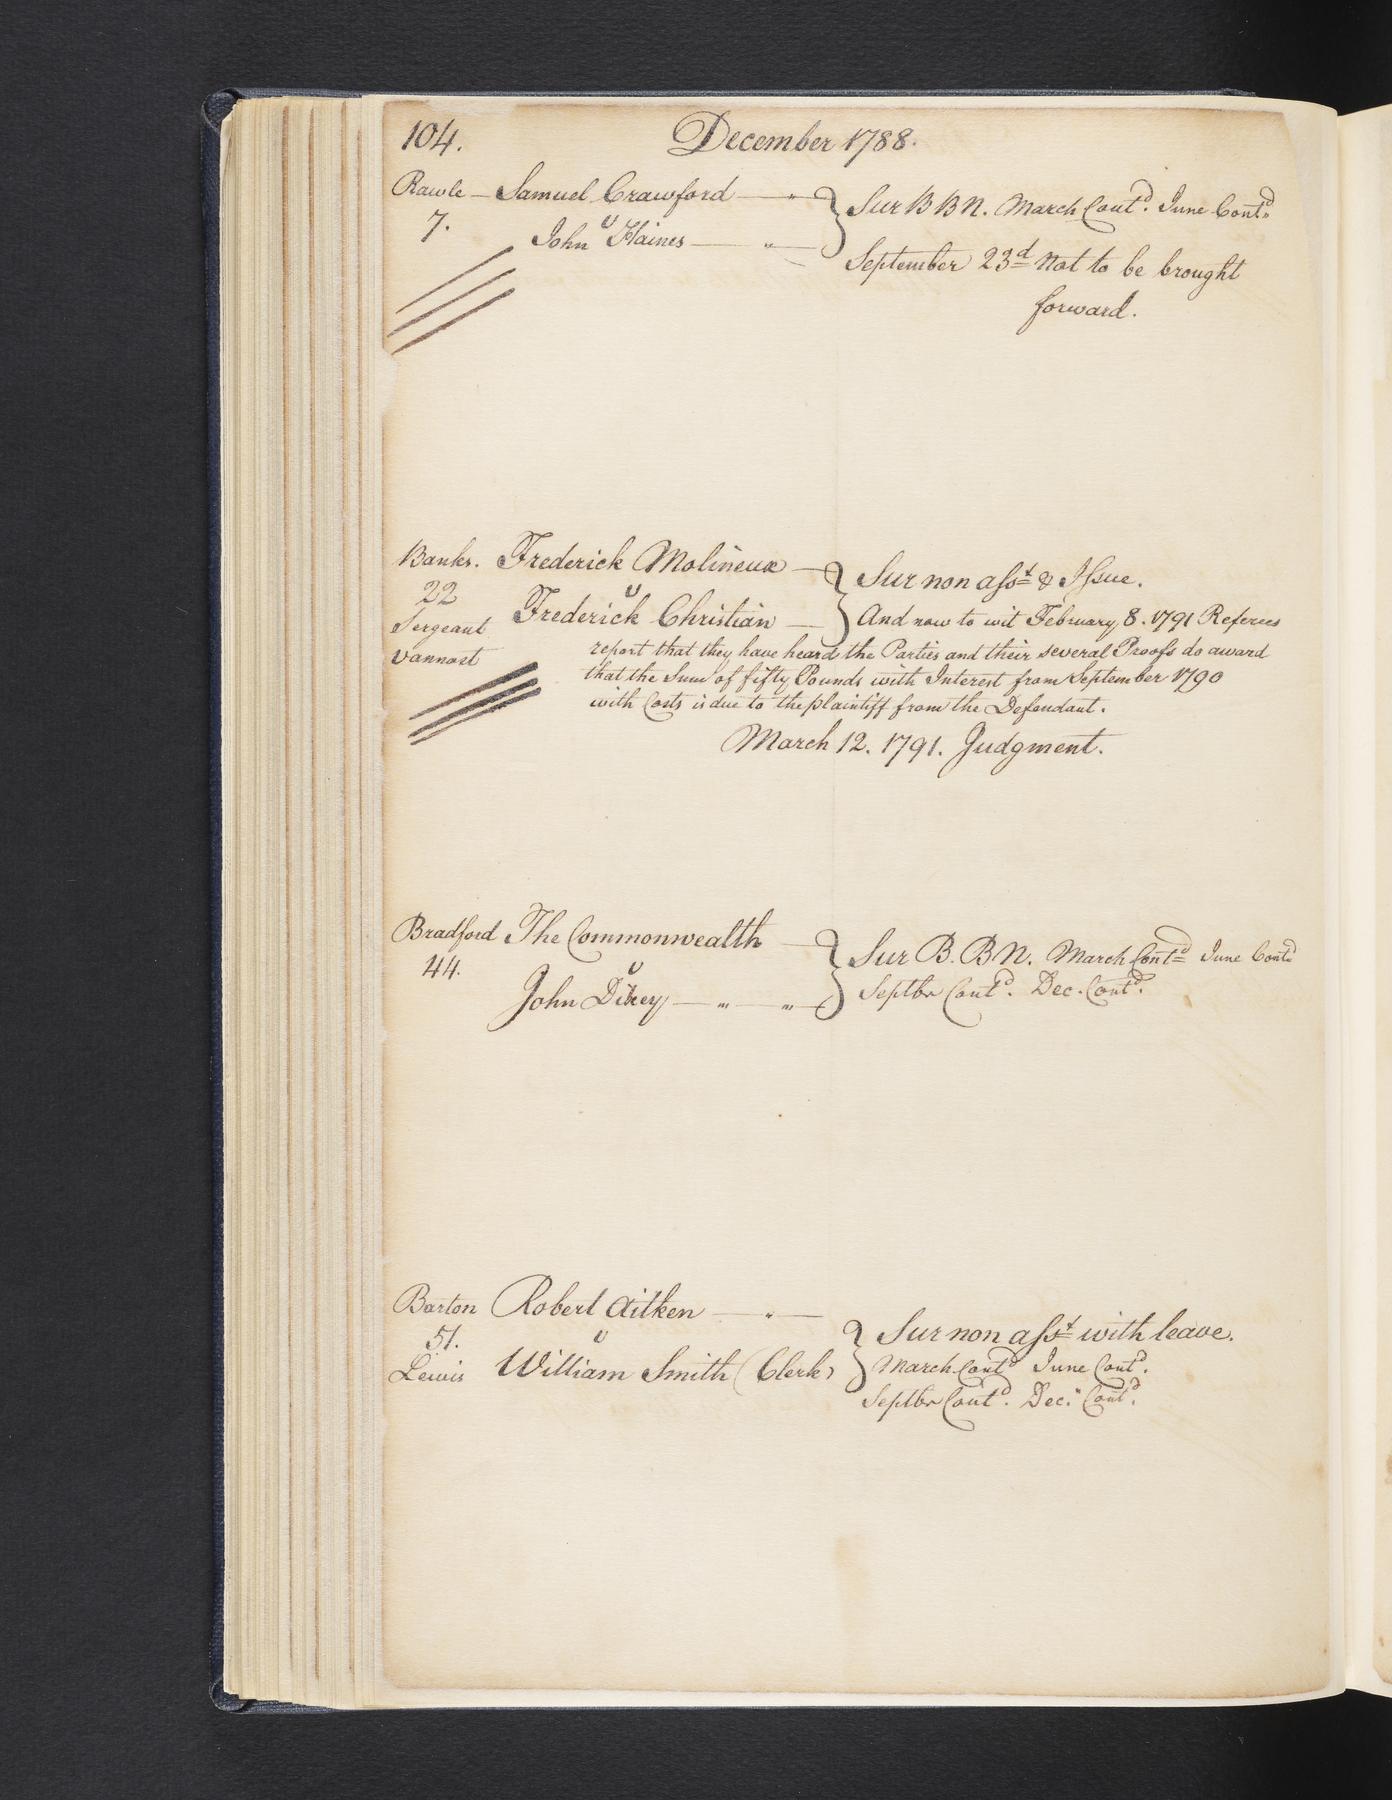 104. December 1788.
Rawle — Samuel Crawford — " — Sur B B N. March Contd. June Contd.
7. v
John Haines — " —
September 23d Not to be brought
forward.
Banks. Frederick Molineux — Sur non asst & Issue.
22 v
Sergeant Frederick Christian — And now to wit February 8. 1791 Referees
Vannost report that they have heard the Parties and their several Proofs do award
that the Sum of fifty Pounds with Interest from September 1790
with Costs is due to the plaintiff from the Defendant.
March 12. 1791. Judgment.
Bradford The Commonwealth — Sur B. B N. March Contd June Contd
44. v
John — " — " — Septbr Contd. Dec. Contd.
Barton Robert Aitken — " —
51. v Sur non asst with leave.
Lewis William Smith (Clerk) March Contd June Contd.
Septbr Contd. Dec. Contd.